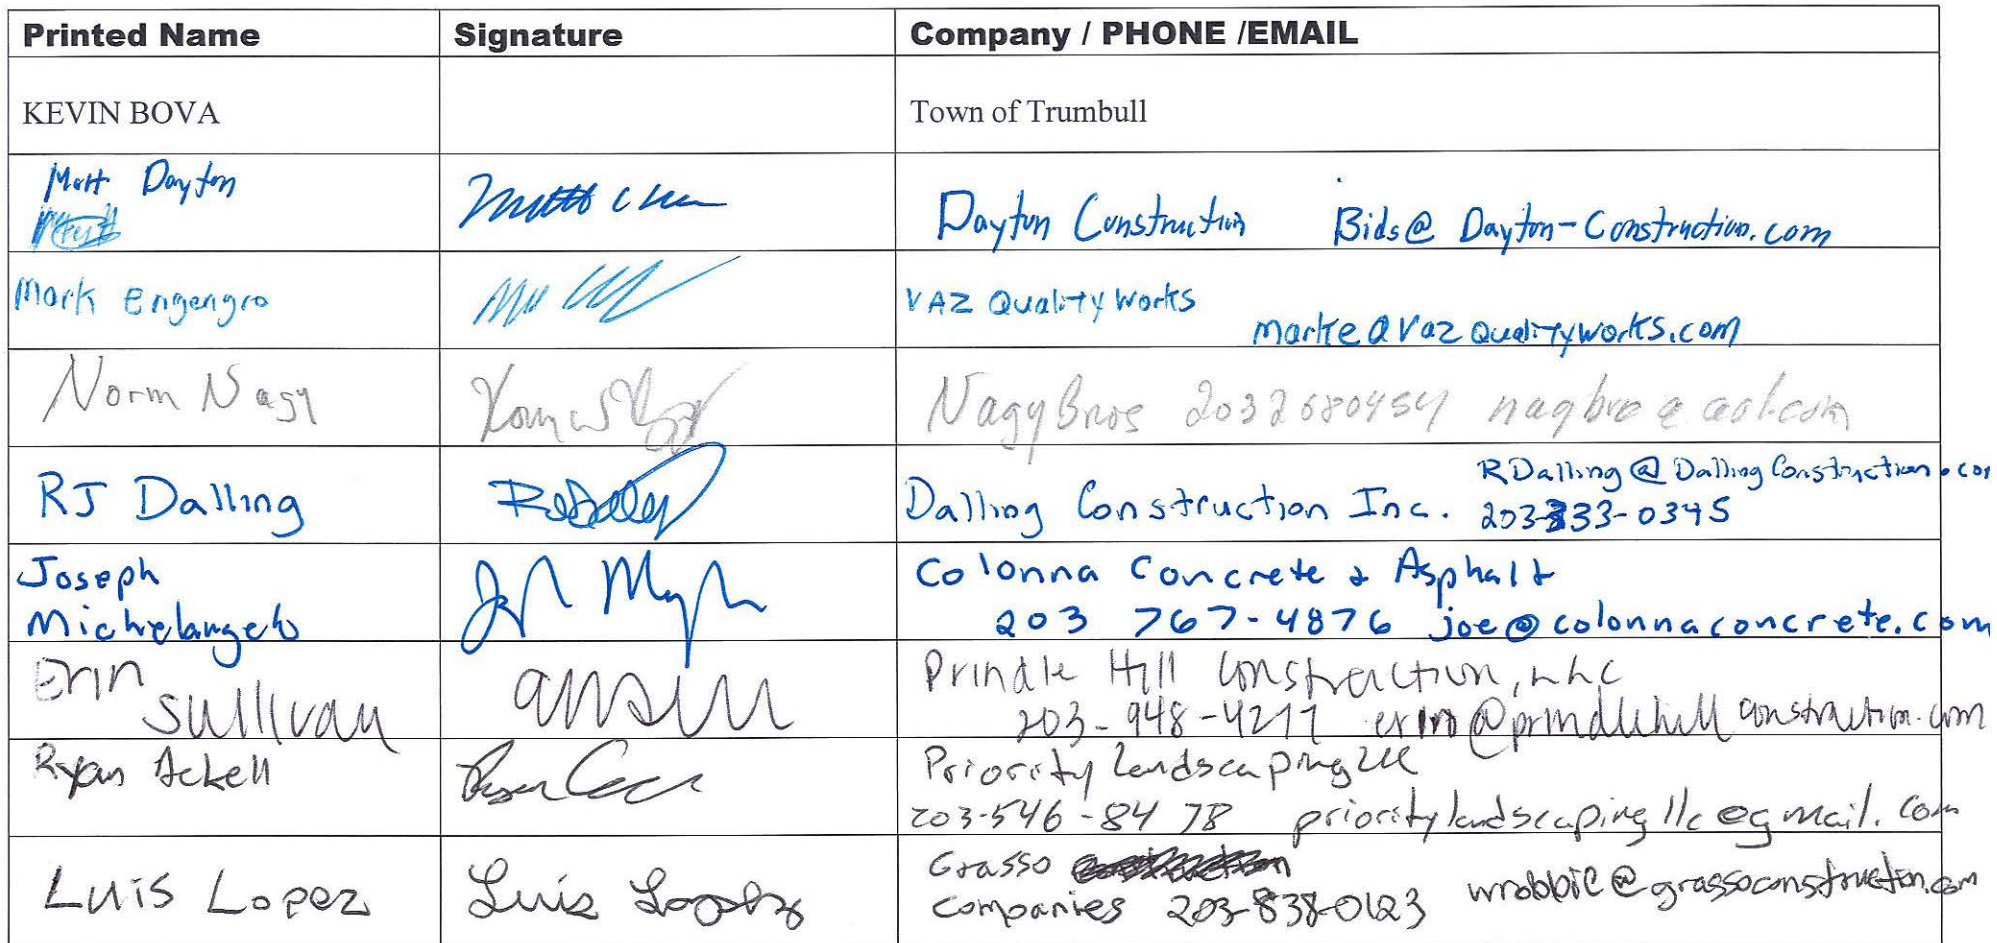 Printed Name Signature Company / PHONE /EMAIL
KEVIN BOVA Town of Trumbull
Matt Dayton
Dayton Construction Bids@Dayton-Construction.com
Mark Engengro VAZ Quality Works
marke@vazqualityworks.com
Norm Nagy Nagy Bros 2032680454 nagbro@aol.com
RJ Dalling Dalling Construction Inc. RDalling@DallingConstruction.com
203-333-0345
Joseph Colonna Concrete & Asphalt
Michelangelo 203 767-4876 joe@colonnaconcrete.com
Erin Prindle Hill Construction, LLC
Sullivan 203-948-4217 erin@prindlehillconstruction.com
Ryan Ackell Priority Landscaping LLC
203-546-8478 prioritylandscapingllc@gmail.com
Grasso
Luis Lopez Luis Lopez companies 203-838-0123 wrobbie@grassoconstruction.com